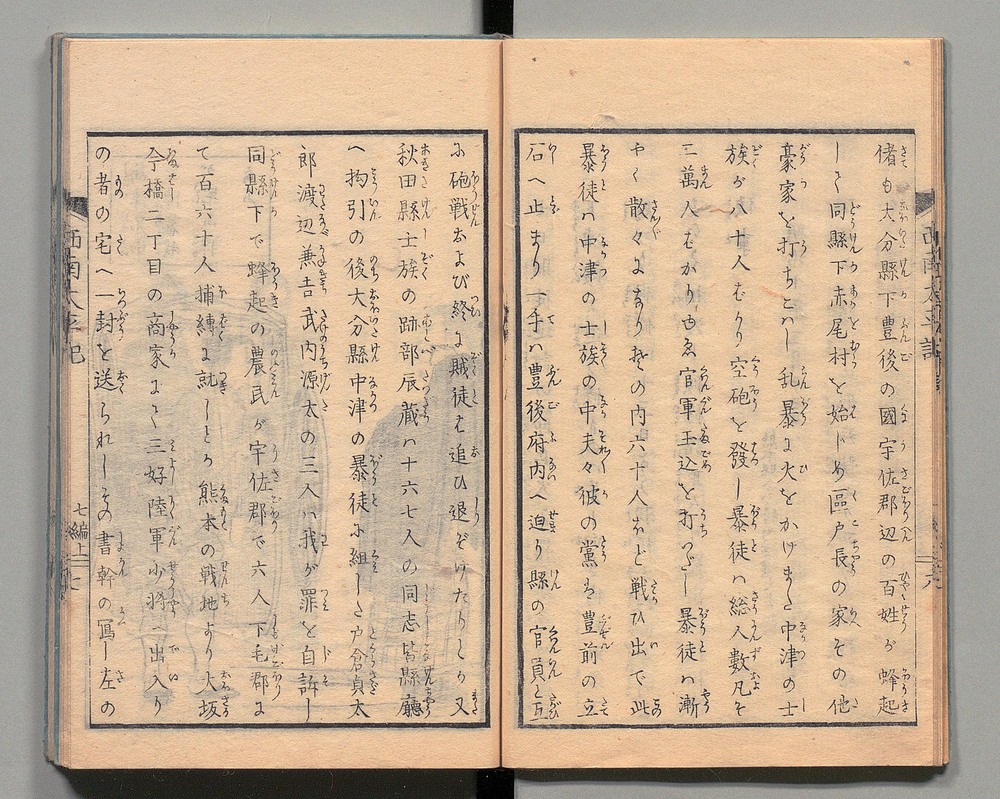 偖も大分縣下豊後の國宇佐郡辺の百姓が蜂起
しく同縣下赤尾村を始しめ區戸長の家その他
豪家を打ちこハし乱暴に火をかけました中津の士
族が八十人むかり空砲を發し暴徒ハ総人數凡そ
三萬人むかりゆゑ官軍玉込を打つし暴徒ハ漸
やく散々になり其の内六十人ほど戦ひ出で此
暴徒ハ中津の士族の中夫々彼の黨も豊前の立
石へ止まり一手ハ豊後府内へ迫り縣の官員と互
に砲戦および終に賊徒を追ひ退ぞけたりしが又
秋田縣士族の跡部辰蔵ハ十六七人の同志皆縣廳
へ拘引の後大分縣中津の暴徒に組した戸倉貞太
郎渡辺兼吉武内源太の三人ハ我が罪を自訴し
同縣下で蜂起の農民が宇佐郡で六人下毛郡に
て百六十人捕縛に就しとか熊本の戦地より大坂
今橋二丁目の商家にて三好陸軍少将へ出入り
の者の宅へ一封を送られしその書幹の寫し左の
西南太平記
七編上
七
西南太平記
六